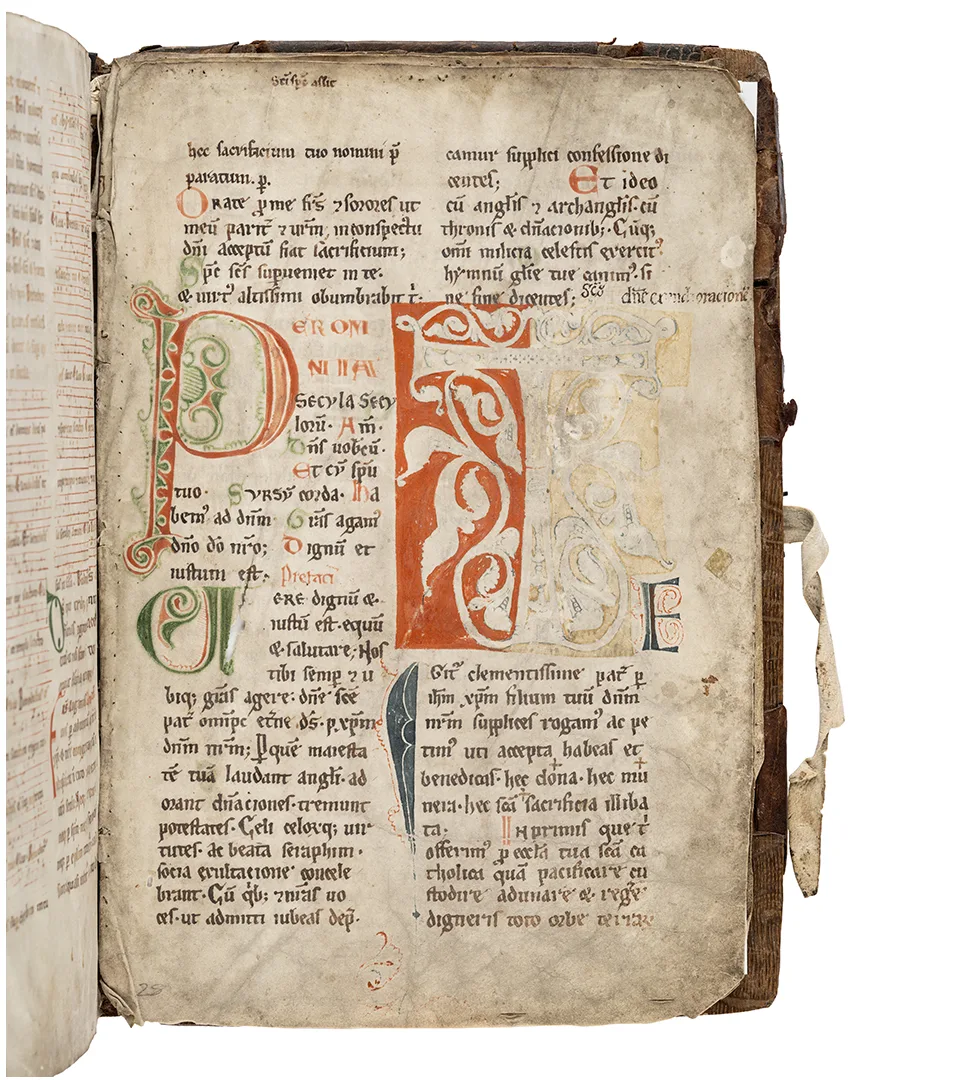 hec sacrificium tuo nomini p̄
paratum. p.
Orate ꝑ me fr̄s ⁊ sorores ut
meū parit̄ ⁊ ur̄m, in conspectu
dn̄i acceptū fiat sacrificium;
Spc̄ sc̄s superueniet in te.
& uirt᷒ altissimi obumbrabit t̄.
PER OM
NI IIA
Secula secu
lorū. Am̄.
Dn̄s uobcū.
Et cū spū
tuo. Sursū corda. Ha
bem᷒ ad dn̄m. Gr̄as agam᷒
dn̄o dō nr̄o; Dignū et
iustum est.
UERE dignū &
iustū est. equū
& salutare; Nos
tibi semꝑ ⁊ u
biq; grās agere. dn̄e sc̄e
pat̄ omīpc et̄ne ds̄. ꝑ xp̄m
dn̄m nr̄m; Ꝑ quē maiesta
tē tuā laudant angl̄i. ad
orant dn̄aciones. tremunt
potestates. Celi celorq; uir
tutes. ac beata seraphim.
socia exultacione concele
brant. Cū qb; ⁊ nr̄as uo
ces. ut admitti iubeas dep̄.
camur supplici confessione di
centes; Et ideo
cū angl̄is ⁊ archangl̄is. cū
thronis & dn̄acionib;. Cūq;
omī milicia celestis exercit᷒
hymnū glīe tue canim᷒. si
ne fine dicentes; Sc̄s
TE
igit᷒ clementissime pat̄ ꝑ
ih̄m xp̄m filium tuū dn̄m
nr̄m supplices rogam᷒ ac pe
tim᷒ uti accepta habeas et
benedicas. hec dona. hec mu
nera. hec sc̄a sacrificia illiba
ta. In primis que t̄
offerim᷒ ꝑ eccl̄a tua sc̄a ca
tholica quā pacificare cu
stodire adunare & rege
digneris toto orbe terrarꝫ
28